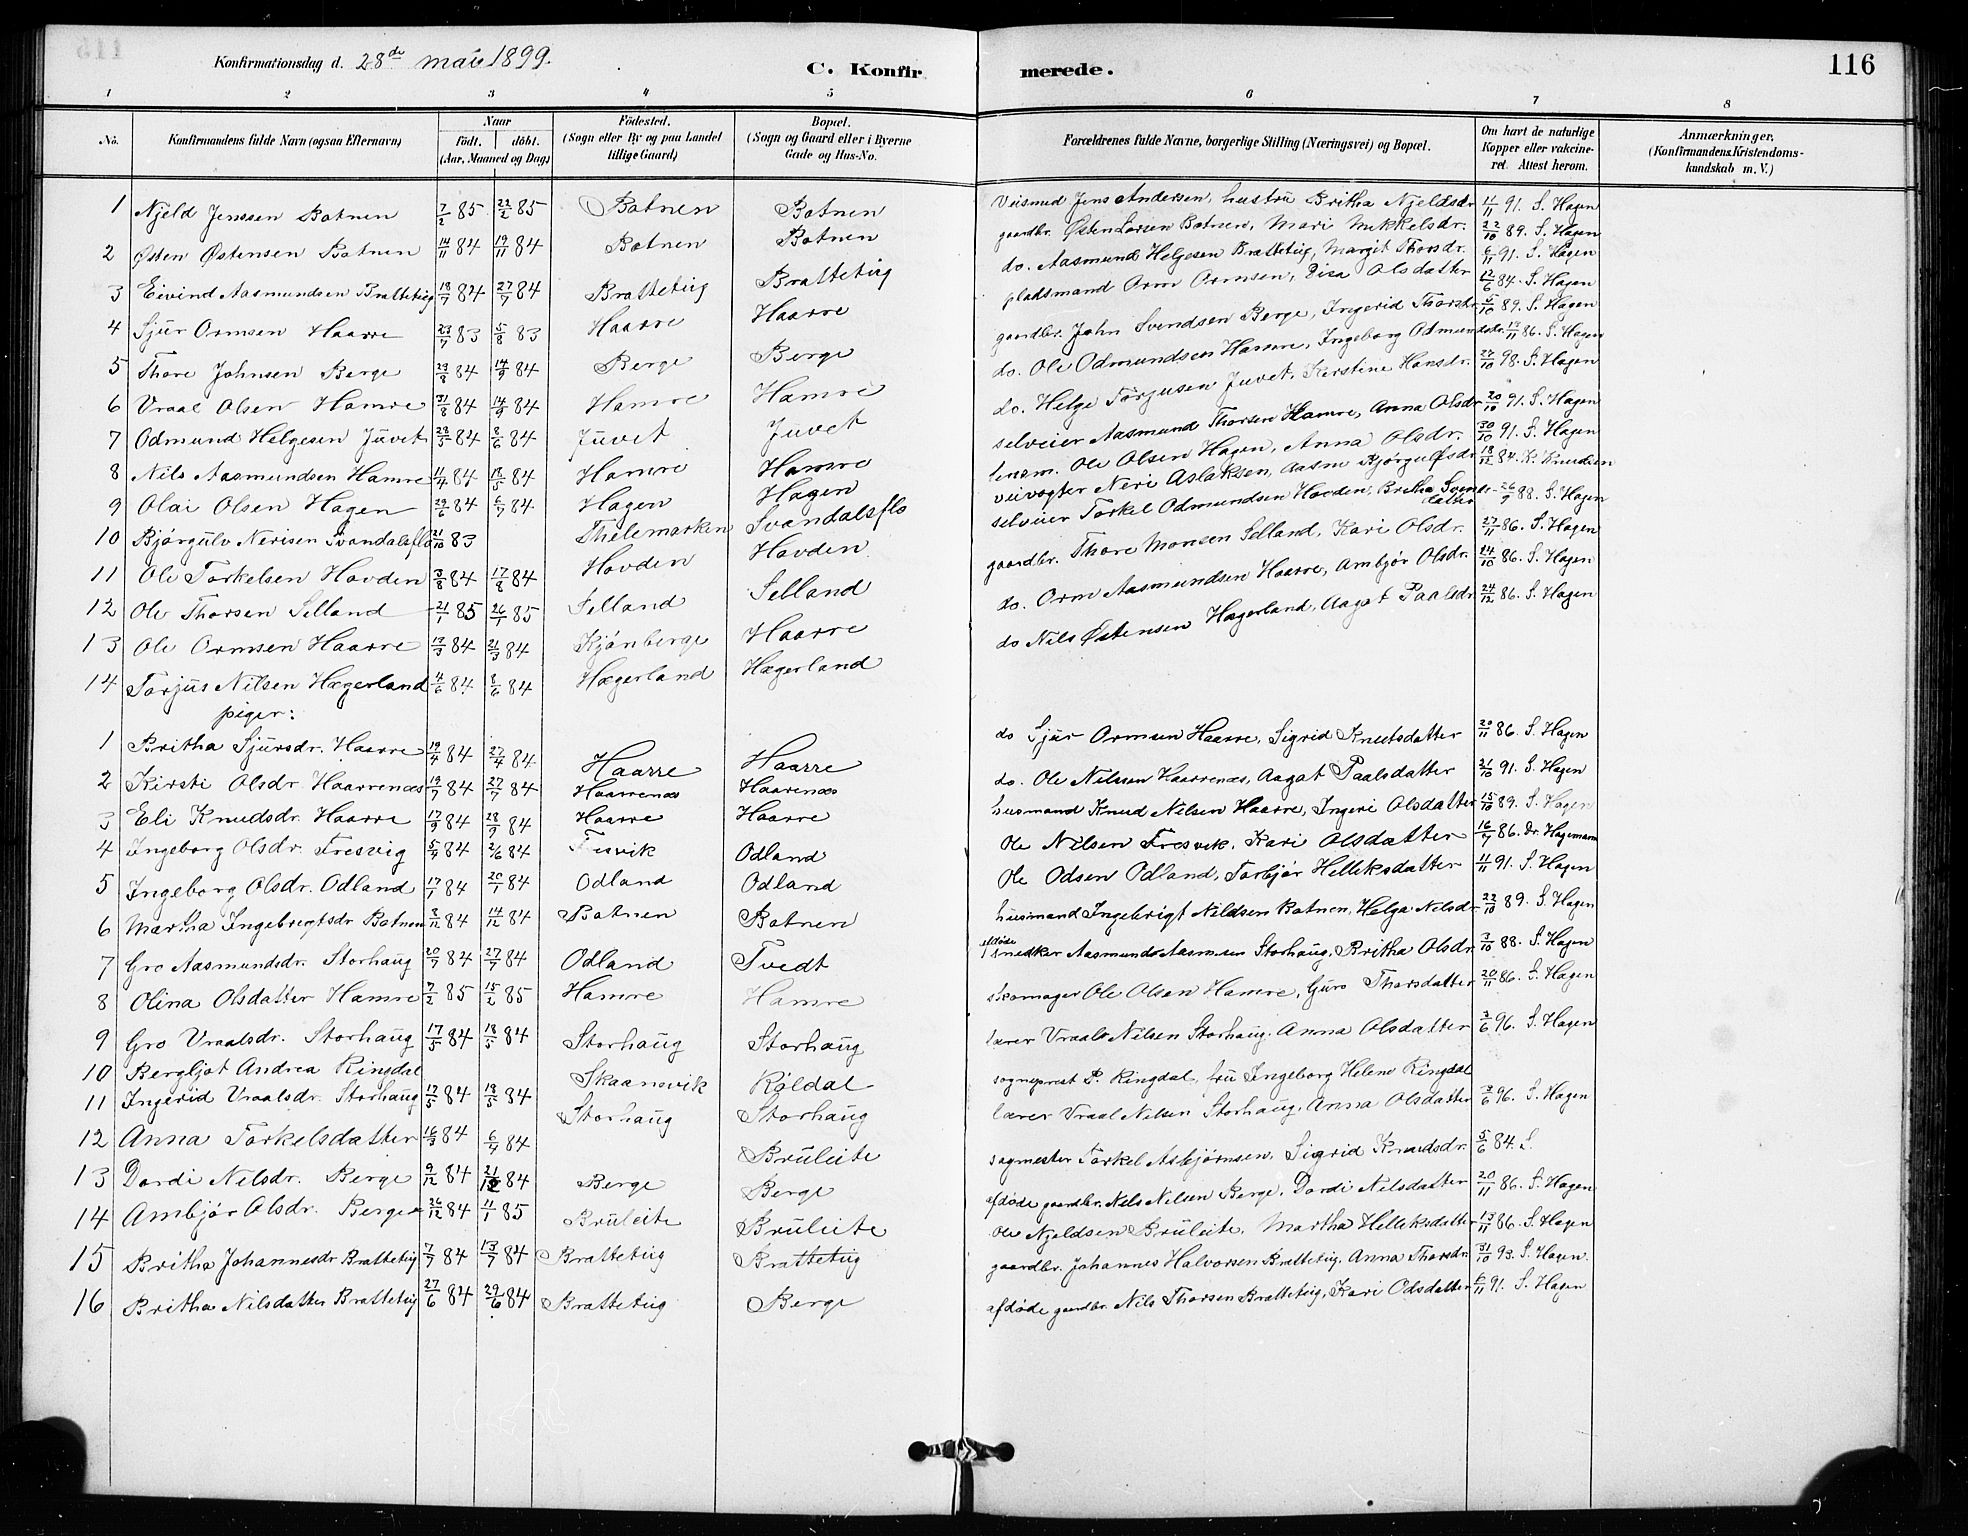 Konfirmationsdag d. 28de mai 1899.
C. Konfirmerede.
116
1 2 3 4 5 6 7 8
No. Konfirmandens fulde Navn (ogsaa Efternavn) Naar født. døbt. (Aar, Maaned og Dag) Fødested. (Sogn eller By og paa Landet tillige Gaard) Bopæl. (Sogn og Gaard eller i Byerne Gade og Hus-No. Forældrenes fulde Navne, borgerlige Stilling (Næringsvei) og Bopæl. Om havt de naturlige Kopper eller vakcineret. Attest herom. Anmærkninger, (Konfirmandens Kristendomskundskab m. V.)
1 Njeld Jenssen Botnen 7/2 85 22/2 85 Botnen Botnen Jens Andersen, hustru Britha Njeldsdr. 11/11 91. S. Hagen
2 Østen Østensen Botnen 14/11 84 19/11 84 Botnen Botnen gaardbr. Østen Larsen Botnen, Mari Mikkelsdr. 22/10 89. S. Hagen
3 Eivind Aasmundsen Bratteteig 18/7 84 27/7 84 Bratteteig Bratteteig do. Aasmund Helgesen Bratteteig, Margit Thorsdr. 6/11 91. S. Hagen
4 Sjur Ormsen Haarre 23/7 83 5/8 83 Haarre Haarre pladsmand Orm Ormsen, Olsdatter 12/6 84. S. Hagen
5 Thore Johnsen Berge 29/8 84 14/9 84 Berge Berge gaardbr. John Svendsen Berge, Ingerid Thorsdr. 5/10 89. S. Hagen
6 Vraal Olsen Hamre 31/8 84 14/9 84 Hamre Hamre do. Ole Odmundsen Hamre, Ingeborg Odmundsdr. 17/11 86. S. Hagen
7 Odmund Helgesen Juvet 28/5 84 8/6 84 Juvet Juvet do. Helge Torjusen Juvet, Kerstine Hansdr. 27/10 98. S. Hagen
8 Nils Aasmundsen Hamre 11/4 84 13/5 84 Hamre Hamre selveier Aasmund Thorsen Hamre, Anna Olsdr. 20/10 91. S. Hagen
9 Olai Olsen Hagen 29/6 84 6/7 84 Hagen Hagen Ole Olsen Hagen, Anna Olsdr. 30/10 91. S. Hagen
10 Bjørgulv Nerisen Svandalsflo 21/10 83 Thelemarken Svandalsflo veivogter Neri Aslaksen, Aasne 18/12 84. K. Knudsen
11 Ole Torkelsen Hovden 3/8 84 17/8 84 Hovden Hovden selveier Torkel Odmundsen Hovden, Britha Svendsdatter 26/9 88. S. Hagen
12 Ole Thorsen Selland 21/1 85 26/1 85 Selland Selland gaardbr. Thore Monsen Selland, Kari Olsdr. 27/11 86. S. Hagen
13 Ole Ormsen Haarre 13/3 84 21/3 84 Kjønberge Haarre do. Orm Aasmundsen Haarre, Ambjør Olsdr. 24/10 86. S. Hagen
14 Torjus Nilsen Hægerland 4/6 84 8/6 84 Hægerland Hægerland do Nils Østensen Hægerland, Aagot Paalsdr. 24/12 86. S. Hagen
piger:
1 Britha Sjursdr. Haarre 19/4 84 27/4 84 Haarre Haarre do Sjur Ormsen Haarre, Sigrid Knutsdatter 20/11 86. S. Hagen
2 Kirsti Olsdr. Haarrenæs 19/7 84 27/7 84 Haarrenæs Haarenæs do. Ole Nilssen Haarrenæs, Aagot Paalsdatter 21/10 91. S. Hagen
3 Eli Knudsdr. Haarre 17/9 84 28/9 84 Haarre Haarre husmand Knud Nilsen Haarre, Ingeri Olsdatter 15/10 89. S. Hagen
4 Ingeborg Olsdr. Fresvig 5/4 84 2/6 84 Odland Ole Nilsen Fresvik, Kari Olsdatter 16/7 86. Dr. Hagemann
5 Ingeborg Olsdr. Odland 17/1 84 20/1 84 Odland Odland Ole Odsen Odland, Torbjør Helleksdatter 11/11 91. S. Hagen
6 Martha Ingebrigtsdr Botnen 8/12 84 14/12 84 Botnen Botnen husmand Ingebrigt Nildsen Botnen, Helga Nilsdr. 22/10 89. S. Hagen
7 Gro Aasmundsdr. Storhaug 20/7 84 27/7 84 Odland Tvedt afdøde snedker Aasmund Aasmsen Storhaug, Britha Olsdr. 3/10 88. S. Hagen
8 Olina Olsdatter Hamre 7/2 85 15/2 85 Hamre Hamre skomager Ole Olsen Hamre, Guro Thorsdatter 20/11 86. S. Hagen
9 Gro Vraalsdr. Storhaug 17/5 84 18/5 84 Storhaug Storhaug lærer Vraal Nilsen Storhaug, Anna Olsdatter 3/6 96. S. Hagen
10 Bergljot Andrea Ringdal Skaanevik Røldal sogneprest P. Ringdal, fru Ingeborg Helene Ringdal
11 Ingerid Vraalsdr. Storhaug 17/5 84 18/5 84 Storhaug Storhaug lærer Vraal Nilsen Storhaug, Anna Olsdatter 3/6 96. S. Hagen
12 Anna Torkelsdatter 16/3 84 6/4 84 Bruleite sagmester Torkel Asbjørnsen, Sigrid Knudsdr. 5/6 84 S.
13 Dordi Nilsdr. Berge 9/12 84 21/12 84 Berge Berge afdøde gaardbr. Nils Nilsen Berge, Dordi Nilsdatter 20/11 86. S. Hagen
14 Ambjør Olsdr. Berge 26/12 84 11/1 85 Bruleite Bruleite Ole Njeldsen Bruleite, Martha Helleksdatter 13/11 86. S. Hagen
15 Britha Johannesdr Bratteteig 7/7 84 13/7 84 Bratteteig Bratteteig gaardbr. Johannes Halvorsen Bratteteig, Anna Thorsdr. 31/10 93. S. Hagen.
16 Britha Nilsdatter Bratteteig 27/6 84 29/6 84 Bratteteig Berge afdøde gaardbr. Nils Thorsen Bratteteig, Kari Odsdatter 6/11 91. S. Hagen